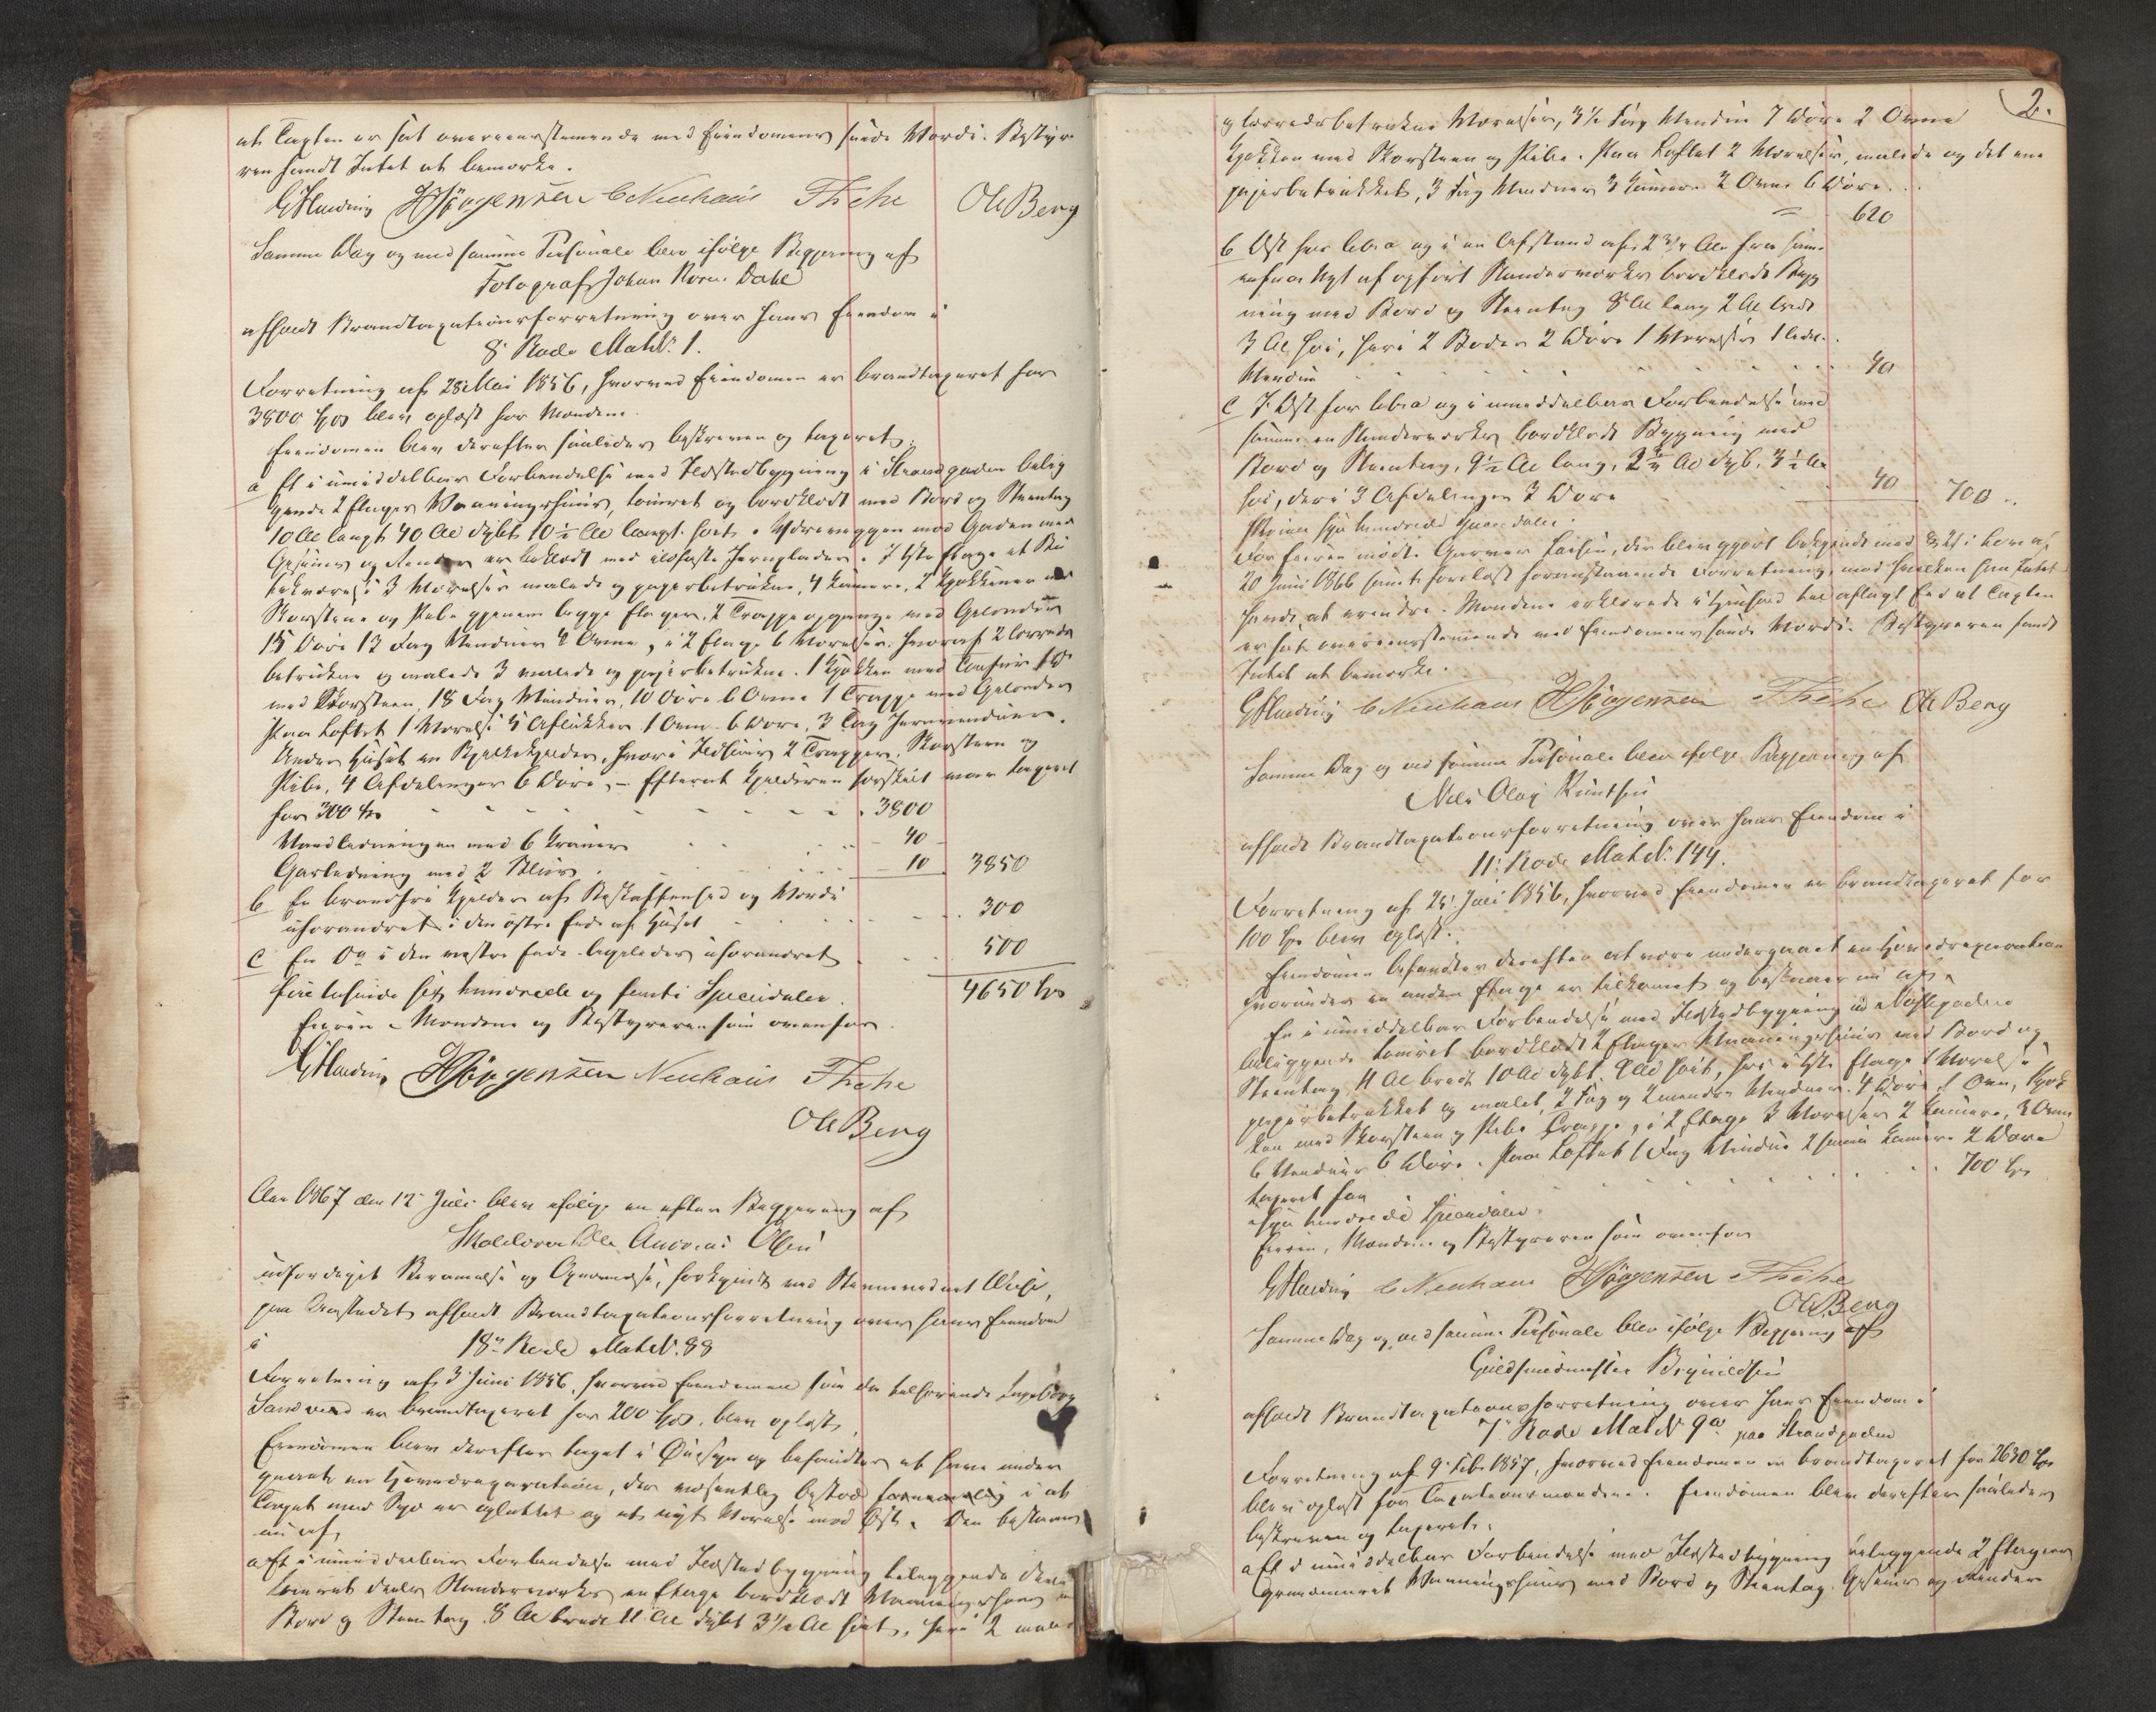 at Taxten er sat overeensstemmende med Eiendommens sande Værdi. Bestyre
ren fandt Intet at bemærke.
HJørgensen CNeuhaus Ole Berg
Samme Dag og med samme Personale blev ifølge Begjæring af
Fotograf Johan Dahl
afholdt Brandtaxationsforretning over hans Eiendom i
8' Rode Mat N: 1.
Forretning af 28 Mai 1856, hvorved Eiendommen er brandtaxeret for
3800 blev oplæst for Mændene.
Eiendommen blev derefter saaledes beskreven og taxeret:
a Et i umiddelbar Forbindelse med Ildstedbygning i Strandgaden belig
gende 2 Etages Vaaningshuus, tømret og bordklædt med Bord og Steentag
10 Al langt 40 Al dybt 10½ Al høit. Ydervæggen mod Gaden med
Gesims og er beklædt med ildfaste Jernplader. I 1ste Etage et
3 Værelser malede og papirbetrukne, 4 Kamere, 2 Kjøkkener med
Skorstene og Pibe gjennem begge Etager, 2 Trappeopgange med Gelænder
15 Døre 13 Fag Vinduer 4 Ovne, i 2 Etage 6 Værelser hvoraf 2 lærreds
betrukne og malede 3 malede og papirbetrukne. 1 Kjøkken med
med Skorsteen, 18 Fag Vinduer, 10 Døre 6 Ovne 1 Trappe med Gelænder
Paa Loftet 1 Værelse 5 Aflukker 1 Ovn 6 Døre, 3 Fag Jernvinduer.
Under Huset en Kjelder, hvori 2 Trapper, Skorsteen og
Pibe, 4 Afdelinger 6 Døre, – Efterat Kjelderen særskilt var taxeret
for 300 3800
Vandledningen med 6 Kraner 40
Gasledning med 2 Blus 10 3850
b En brandfri Kjelder af Beskaffenhed og Værdi
uforandret i den østre Ende af Huset 300
c En Do i den vestre Ende ligeledes uforandret 500
fire tusinde sex hundrede og femti Speciedaler. 4650
Eieren, Mændene og Bestyreren som ovenfor.
HJørgensen Neuhaus
Ole Berg
Aar 1867 den 12' Juli blev ifølge en efter Begjæring af
Ole Olsen
udfærdiget Berammelse og Opnævnelse, forkyndt ved Stævnevidnet
paa Aastedet afholdt Brandtaxationsforretning over hans Eiendom
i 18de Rode Mat N. 88
Forretning af 3 Juni 1856, hvorved Eiendommen som da tilhørende Ingeborg
er brandtaxeret for 200 blev oplæst,
Eiendommen blev derefter taget i Øiesyn og befandtes at have under
gaaet en Hovedreparation, der væsentlig bestod fornemmelig i at
Taget mod Syd er opløftet og et nyt Værelse mod Øst. Den bestaar
nu af,
a Et i umiddelbar Forbindelse med Ildstedbygning beliggende deels
tømret deels Standerværks en Etage bordklædt Vaaningshuus
Bord og Steentag 8 Al bredt 11 Al dybt 3½ Al høit, heri 2 male
2.
og lærredsbetrukne Værelser, 3½ Fag Vinduer 7 Døre 2 Ovne
Kjøkken med Skorsteen og Pibe. Paa Loftet 2 Værelser, malede og det ene
papirbetrukket, 3 Fag Vinduer 3 Kamere 2 Ovne 6 Døre.
620
b Øst for Litra a og i en Afstand af 2¾ Alen fra samme
nyt af opført Standerværks bordklædt Byg
ning med Bord og Steentag 8 Al lang 2 Al bredt
3 Al høi, heri 2 Boder 2 Døre 1 Værelse
Vindue 40
c I Øst for Litra a og i umiddelbar Forbindelse med
samme en Standerværks bordklædt Bygning med
Bord og Steentag, 9½ Al lang, Al dyb, 3½ Al
høi, deri 3 Afdelinger 3 Døre 40 700
syv hundrede Speciedaler.
For Eieren mødte Garver der blev gjort bekjendt med § 21 i Lov af
20 Juni 1866 samt forelæst foranstaaende Forretning, mod hvilken han Intet
havde at erindre. Mændene erklærede i Henhold til aflagt Eed at Taxten
er sat overeensstemmende med Eiendommens sande Værdi. Bestyreren fandt
Intet at bemærke.
CNeuhaus HJørgensen Ole Berg
Samme Dag og ved samme Personale blev ifølge Begjæring af
Nils Olai Knutsen
afholdt Brandtaxationsforretning over hans Eiendom i
11' Rode Mat N: 144.
Forretning af 25' Juli 1856, hvorved Eiendommen er brandtaxeret for
100 blev oplæst.
Eiendommen befandtes derefter at være undergaaet en Hovedreparation
hvorunder en anden Etage er tilkommet og bestaaer nu af,
En i umiddelbar Forbindelse med Ildstedbygning ved Nøstegaden
beliggende tømret bordklædt 2 Etages Vaaningshuus med Bord og
Steentag 11 Al bredt 10 Al dybt 9 Al høit, heri i 1ste Etage 1 Værelse
papirbetrukket og malet, 2 Fag og 2 mindre Vinduer, 4 Døre 1 Ovn, Kjøk
ken med Skorsteen og Pibe Trappe, i 2 Etage 3 Værelser 2 Kamere, 3 Ovne
6 Vinduer 6 Døre. Paa Loftet 1 Fag Vindue 2 smaa Kamere 2 Døre
taxeret for 700
syv hundrede Speciedaler.
Eieren, Mændene og Bestyreren som ovenfor
CNeuhaus HJørgensen
Ole Berg
Samme Dag og ved samme Personale blev ifølge Begjæring af
Guldsmedmester Brynildsen
afholdt Brandtaxationsforretning over hans Eiendom i
7' Rode Mat N 9a paa Strandgaden
Forretning af 9' Feb. 1857, hvorved Eiendommen er brandtaxeret for 2630
blev oplæst for Taxationsmændene. Eiendommen blev derefter saaledes
beskreven og taxeret.
a Et i umiddelbar Forbindelse med Ildstedbygning beliggende 2 Etages
grundmuret Vaaningshuus med Bord og Steentag. Gesims og Render